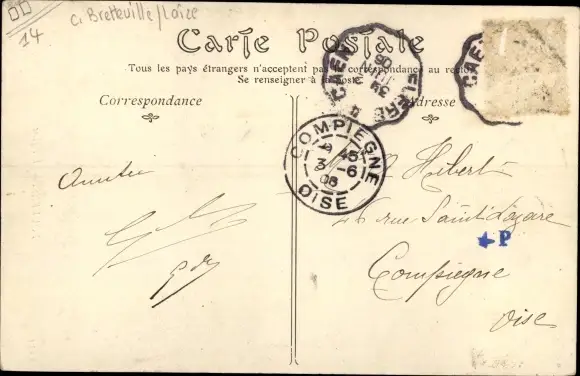 Ci Bretteville/Laize
14
Carte Postale
Tous les pays étrangers n'acceptent pas la correspondance au recto
Se renseigner à la poste
Correspondance
Adresse
CAEN
06
CAEN
COMPIEGNE
3 -6
06
OISE
Hibert
26 rue Saint Lazare
P
Compiegne
Oise